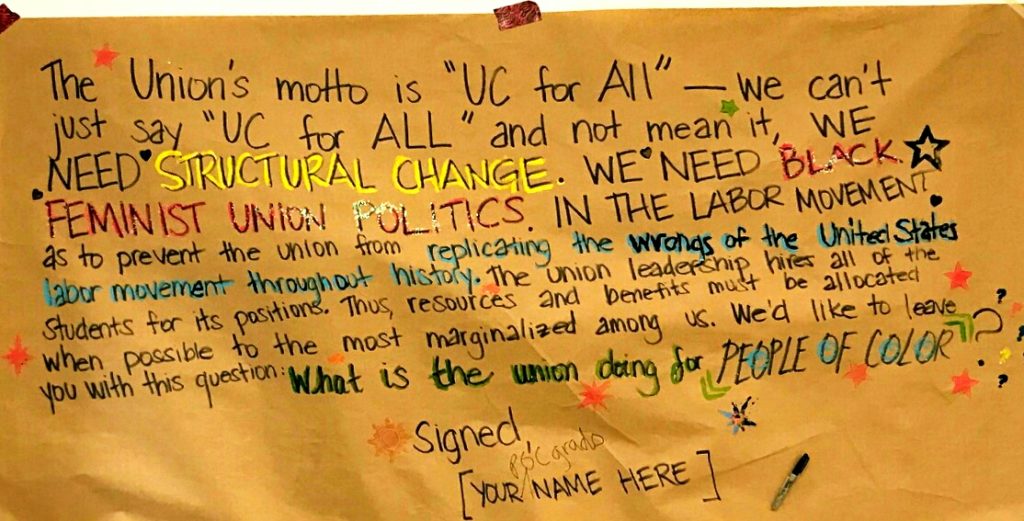 The Union's motto is "UC for All" — we can't
just say "UC for ALL" and not mean it, WE
NEED STRUCTURAL CHANGE. WE NEED BLACK
FEMINIST UNION POLITICS. IN THE LABOR MOVEMENT
as to prevent the union from replicating the wrongs of the United States
labor movement throughout history. The union leadership hires all of the
students for its positions. Thus, resources and benefits must be allocated
when possible to the most marginalized among us. We'd like to leave
you with this question: What is the union doing for PEOPLE OF COLOR ?
Signed,
POC grads
[YOUR NAME HERE]